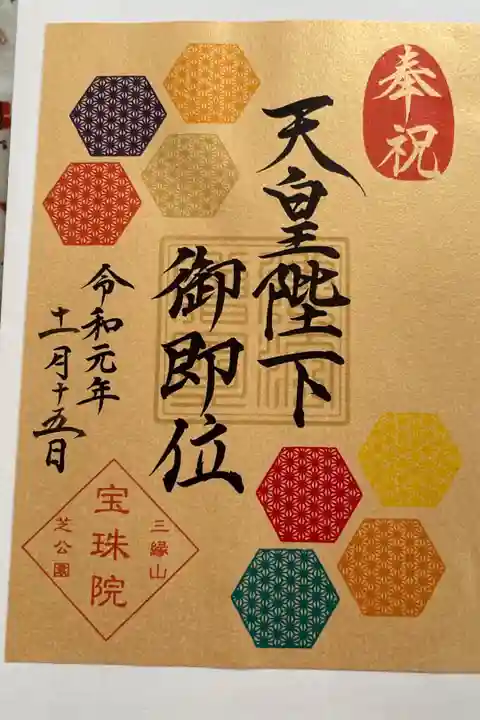 奉祝
天皇陛下
御即位
令和元年
十一月十五日
三縁山
宝珠院
芝公園